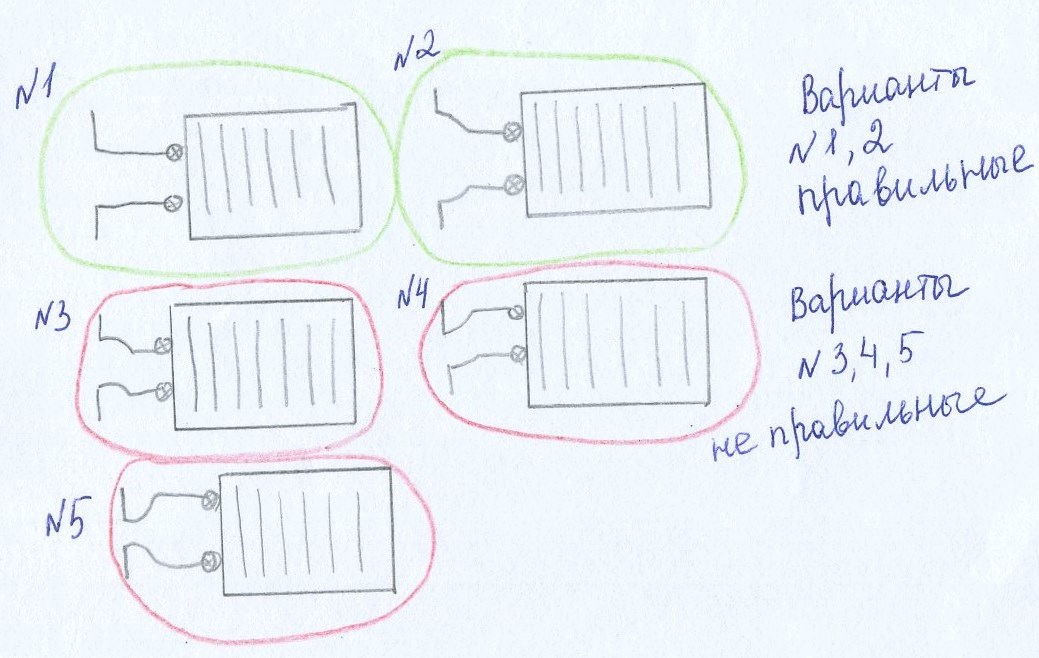 N1
N2
Варианты
N1,2
правильные
N3
N4
Варианты
N3,4,5
не правильные
N5